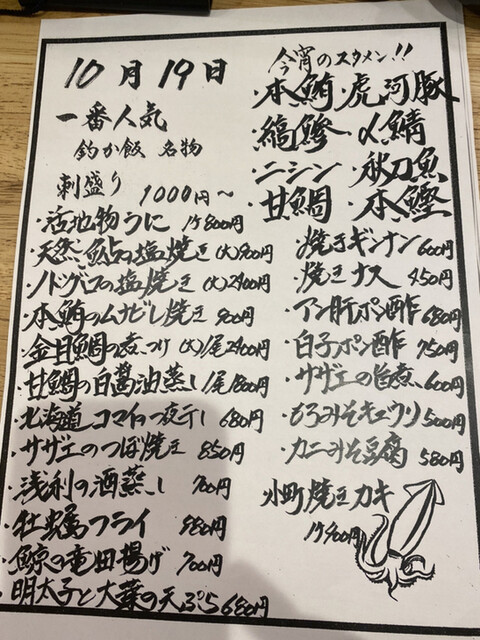 10月19日
一番人気
釣か飯 名物
刺盛り 1000円〜
・活地物うに 1ケ800円
・天然鮎の塩焼き (大)900円
・ノドグロの塩焼き (大)2400円
・本鮪のムナビレ焼き 900円
・金目鯛の煮つけ (大)1尾2400円
・甘鯛の白醤油蒸し 1尾1800円
・北海道コマイの一夜干し 680円
・サザエのつぼ焼き 850円
・浅利の酒蒸し 700円
・牡蠣フライ 980円
・鯨の竜田揚げ 700円
・明太子と大葉の天ぷら 680円
今宵のスタメン!!
・本鮪・虎河豚
・縞鯵・〆鯖
・ニシン・秋刀魚
・甘鯛・本鰹
・焼きギンナン 600円
・焼きナス 450円
・アン肝ポン酢 680円
・白子ポン酢 750円
・サザエの旨煮 600円
・もろみそキュウリ 500円
・カニみそ豆腐 580円
小町焼きカキ
1ケ400円